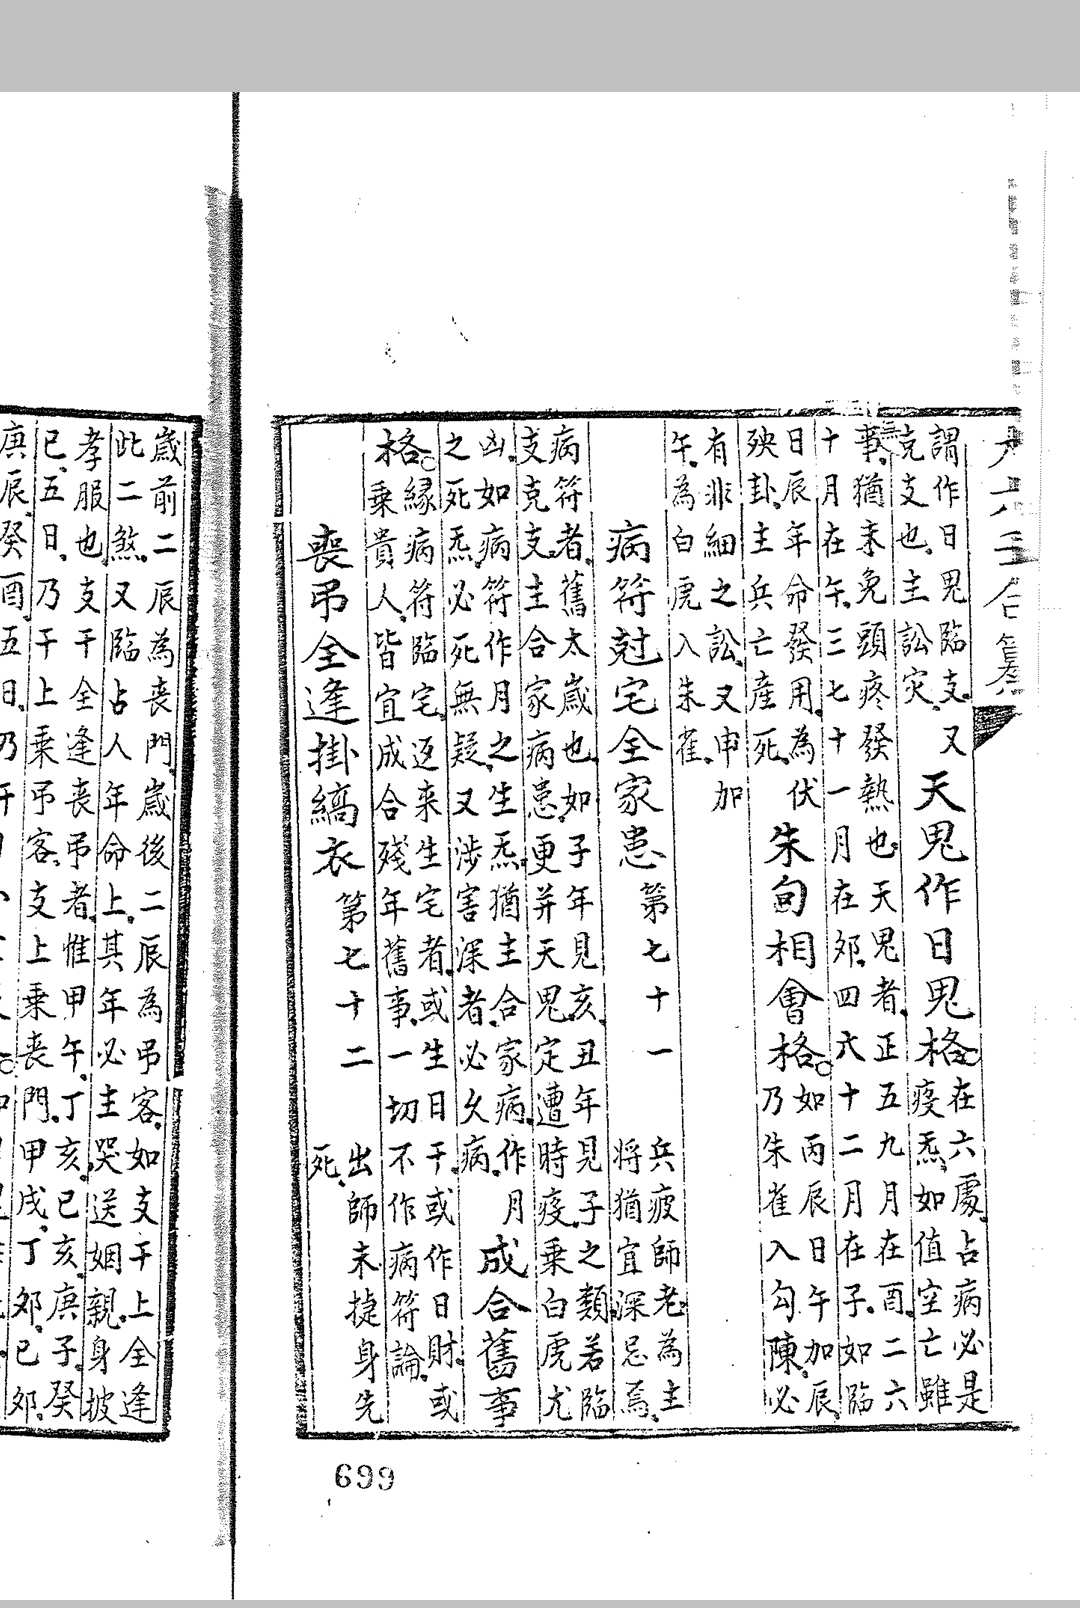 大六壬合
謂作日鬼臨支.又
克支也.主訟灾.
天鬼作日鬼格○
在六處.占病必是
疫炁.如值空亡雖
事.猶未免頭疼發熱也.天鬼者.正五九月在酉.二六
十月在午.三七十一月在夘.四六十二月在子.如臨
日辰年命發用.為伏
殃卦.主兵亡産死.
朱勾相會格○
如丙辰日午加辰.
乃朱雀入勾陳.必
有非細之訟.又申加
午.為白虎入朱雀.
病符尅宅全家患
第七十一
兵疲師老為主
將猶宜深忌焉.
病符者.舊太歲也.如子年見亥.丑年見子之類.若臨
支克支.主合家病患.更并天鬼定遭時疫.乗白虎尤
凶.如病符作月之生炁.猶主合家病.作月
之死炁.必死無疑.又涉害深者.必久病.
成合舊事
格○
縁病符臨宅.返来生宅者.或生日干.或作日財.或
乗貴人.皆宜成合殘年舊事.一切不作病符論.
喪吊全逢掛縞衣
第七十二
出師未捷身先
死.
699
歲前二辰為喪門.歲後二辰為吊客.如支干上全逢
此二煞.又臨占人年命上.其年必主哭送姻親.身披
孝服也.支干全逢丧吊者.惟甲午.丁亥.已亥.庚子.癸
已.五日.乃干上乗吊客.支上乗丧門.甲戌.丁夘.已夘.
庚辰.癸酉.五日.乃干